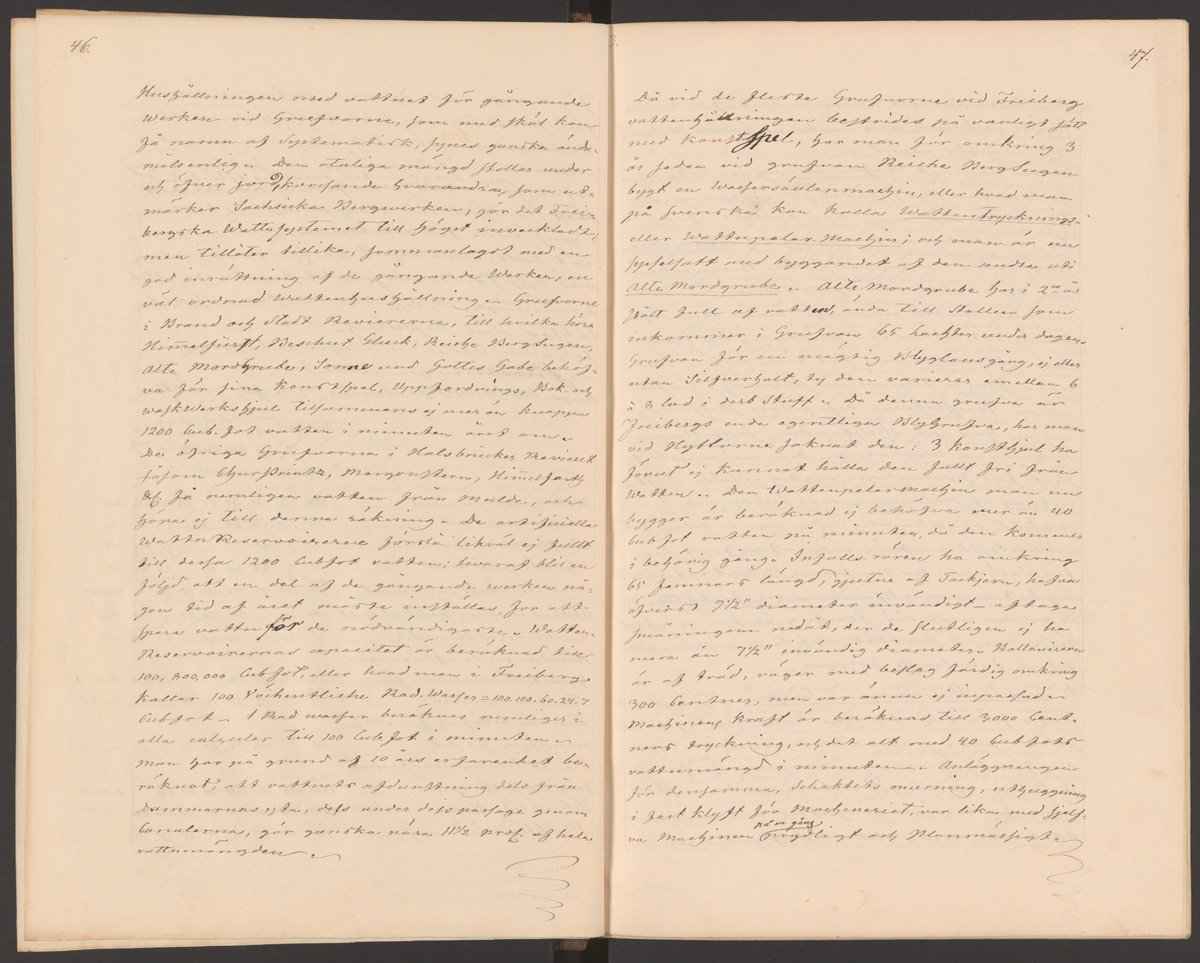 46.
Hushållningen med vattnet för gångande
Werken vid Grufvorne, som med skäl kan
få namn af Systematisk, synes ganska ända-
målsenlig. Den otaliga mängd stollar under
och öfver jord, korsande hvarandra, som ut-
märker Sachsiska Bergwerken, gör det Frei-
bergska Wattusystemet till högst invekladt,
men tillåter tillika, sammanlagdt med en
god inrättning af de gångande Werken, en
väl ordnad Wattenhushållning. Grufvorne
i Brand och Stadt Reviererna, till hvilka höra
Himmelfürst, Beschert Glück, Reiche BergSegen,
Alte Mordgrube, Sonne und Gottes Gabe behöf-
va för sina konstspel, Uppfordrings, Bok- och
waskwerkshjul tillsammans ej mer än knappa
1200 Cub. fot vatten i minuten året om.
De öfriga Grufvorna i Halsbrücker Revieret
såsom Churprintz, Morgonstern, Himmelfarth
&c. få nemligen vatten från Mulde, och
höra ej till denna räkning. De artificiella
WattuReservoirerne förslå likväl ej fullt
till dessa 1200 Cubfot vatten; hvaraf blir en
följd, att en del af de gångande werken nå-
gon tid af året måste inställas, för att
spara vattn för de nödvändigaste. Watten-
Reservoirernas capacitet är beräknad till
100,800,000 Cub fot, eller hvad man i Freiberg
kallar 100 Vöchentliche Rad. Wasser = 100.100.60.24.7
Cubfot. 1 Rad wasser beräknas nemligen i
alla calculer till 100 Cub. fot i minuten.
Man har på grund af 10 års erfarenhet be-
räknat, att vattnets afdunstning dels från
dammarnas yta, dels under dess passage genom
Canalerna, gör ganska nära 11 1/2 proC. af hela
vattumängden.

47.
Då vid de fleste Grufvorne vid Freiberg
vattenhållningen bestrides på vanligt sätt
med konstspel, har man för omkring 3
år sedan vid grufvan Reiche BergSegen
bygt en Wassersäulenmachin, eller hvad man
på svenska kan kalla Wattentrycknings-
eller Wattupelar-Machin; och man är nu
sysselsatt med byggandet af den andra uti
Alte Mordgrube. Alte Mordgrube har i 2ne år
stått full af vatten, ända till Stollen som
inkommer i Grufvan 65 Lachter under dagen.
Grufvan för en mägtig Blyglansgång, ej eller
utan Silfverhalt, ty den varierar emellan 6
à 8 lod i derb Stuff. Då denna grufva är
Freibergs enda egentliga BlyGrufva, har man
vid Hyttorne saknat den: 3 konsthjul ha
förut ej kunnat hålla den fullt fri från
Watten. Den Wattenpelarmachin man nu
bygger är beräknad ej behöfva mer än 40
Cub fot vatten på minuten, då den kommer
i behörig gång. Infalls rören ha omkring
65 famnars längd, gjutne af Tackjern, hafva
öfverst 9 1/2" diameter invändigt – aftaga
småningom nedåt, der de slutligen ej ha
mera än 7 1/2" invändig diameter. Ballanciern
är af träd, väger med beslag färdig omkring
300 Centner, men var ännu ej inpassad.
Machinens kraft är beräknad till 3,000 Cent-
ners tryckning, och det alt med 40 Cub fots
vattumängd i minuten. Anläggningen
för densamma, Schaktets murning, uthuggning
i fast klyft för Machineriet, var lika med sjelf-
va Machinen på en gång Prydligt och Planmässigt.